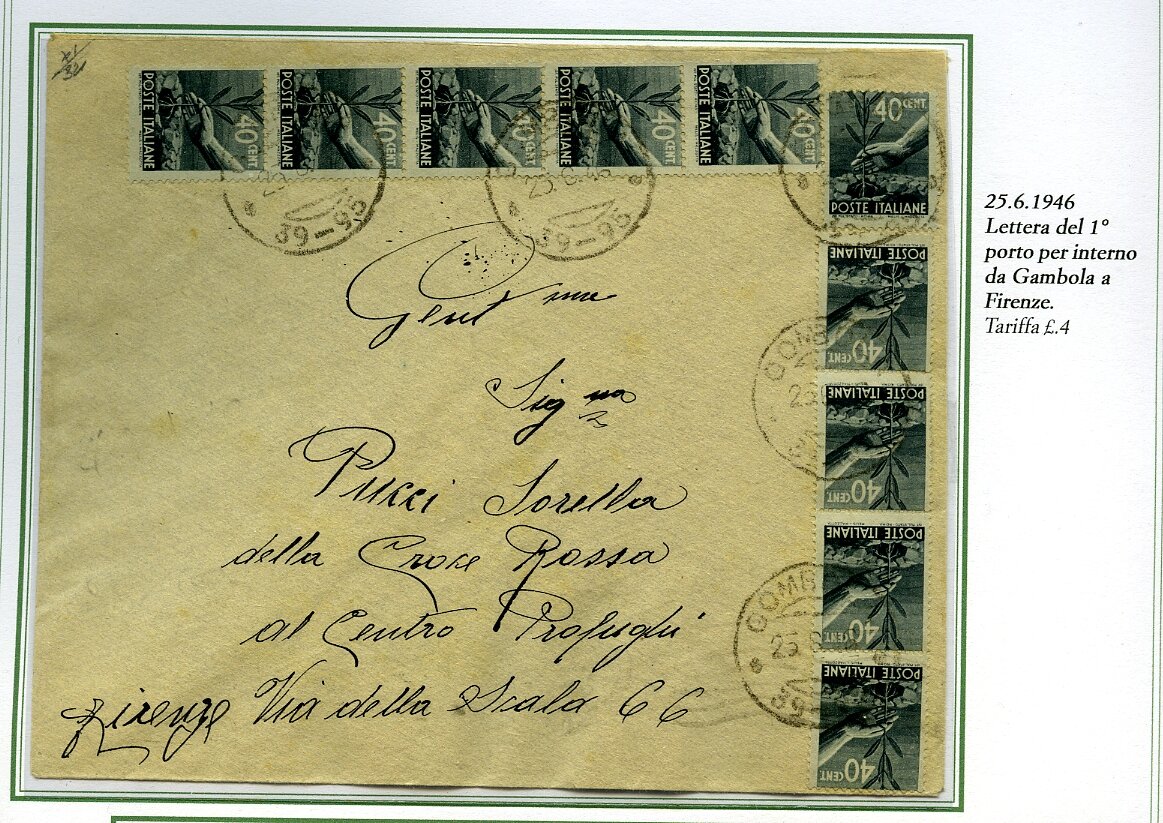 POSTE ITALIANE 40 CENT.
POSTE ITALIANE 40 CENT.
POSTE ITALIANE 40 CENT.
POSTE ITALIANE 40 CENT.
POSTE ITALIANE 40 CENT.
40 CENT.
POSTE ITALIANE
POSTE ITALIANE
40 CENT.
POSTE ITALIANE
40 CENT.
POSTE ITALIANE
40 CENT.
POSTE ITALIANE
40 CENT.
39-95
25.6.46
39-95
Gent ma
Sig na
Pucci Sorella
della Croce Rossa
al Centro Profughi
Firenze Via della Scala 66
25.6.1946
Lettera del 1°
porto per interno
da Gambola a
Firenze.
Tariffa £.4